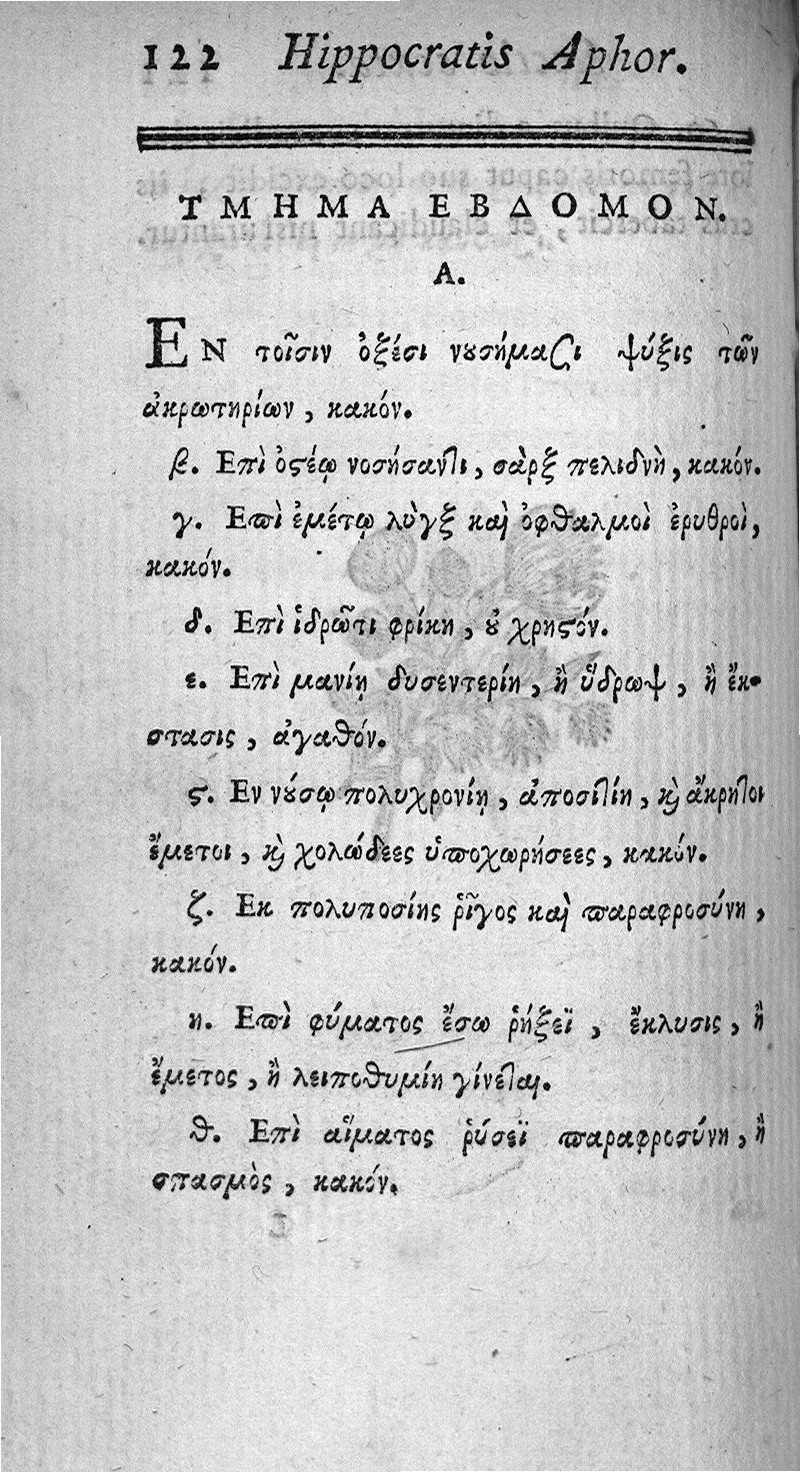 122 Hippocratis Aphor.
ΤΜΗΜΑ ΕΒΔΟΜΟΝ.
Α.
ΕΝ τοῖσιν ὀξέσι νȣσήμασι ψύξις τῶν
ἀκρωτηρίων, κακόν.
β. Επὶ ὀϛέῳ νοσήσαντι, σὰρξ πελιδνὴ, κακόν.
γ. Επὶ ἐμέτῳ λὺγξ καὶ ὀφθαλμοὶ ἐρυθροὶ,
κακόν.
δ. Επὶ ἱδρῶτι φρίκη, ȣ χρηϛόν.
ε. Επὶ μανίῃ δυσεντερίη, ἢ ὕδρωψ, ἢ ἔκ-
στασις, ἀγαθόν.
ϛ. Εν νȣ́σῳ πολυχρονίῃ, ἀποσιτίη, ϗ ἄκρητοι
ἔμετοι, ϗ χολώδεες ὑποχωρήσεες, κακόν.
ζ. Εκ πολυποσίης ῥῖγος καὶ παραφροσύνη,
κακόν.
η. Επὶ φύματος ἔσω ῥήξεϊ, ἔκλυσις, ἢ
ἔμετος, ἢ λειποθυμίη γίνεται.
θ. Επὶ αἵματος ῥύσεϊ παραφροσύνη, ἢ
σπασμὸς, κακόν.